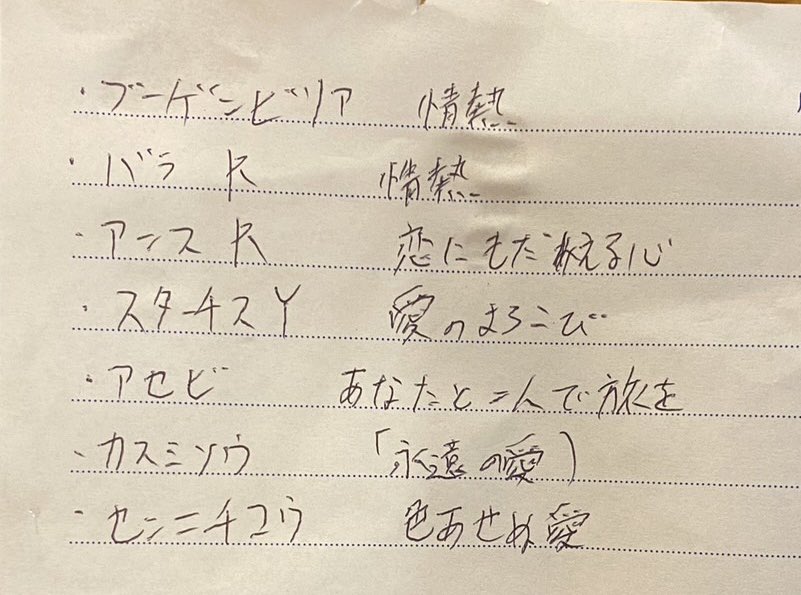 ・ブーゲンビリア 情熱
・バラ R 情熱
・アンス R 恋にもだえる心
・スターチス Y 愛のよろこび
・アセビ あなたと二人で旅を
・カスミソウ 「永遠の愛)
・センニチコウ 色あせぬ愛